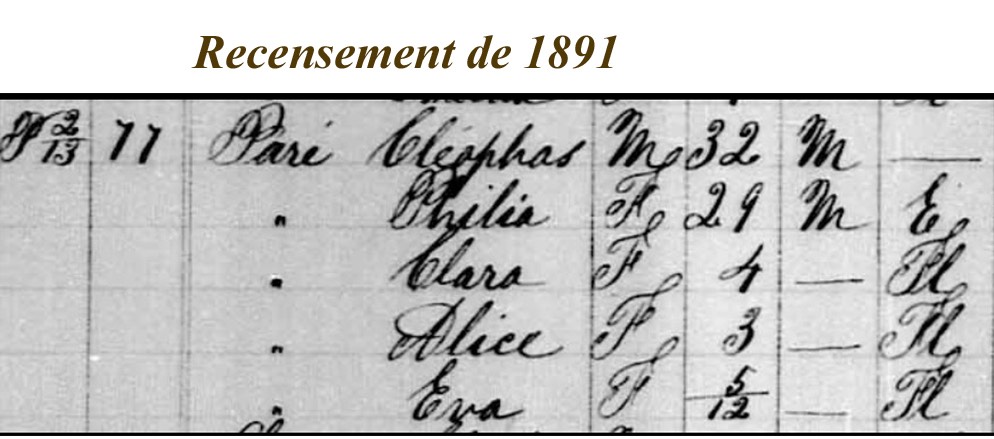 Recensement de 1891
P 2/13 77 Paré Cléophas M 32 M —
" Philia F 29 M E
" Clara F 4 — Fl
" Alice F 3 — Fl
" Eva F 5/12 — Fl